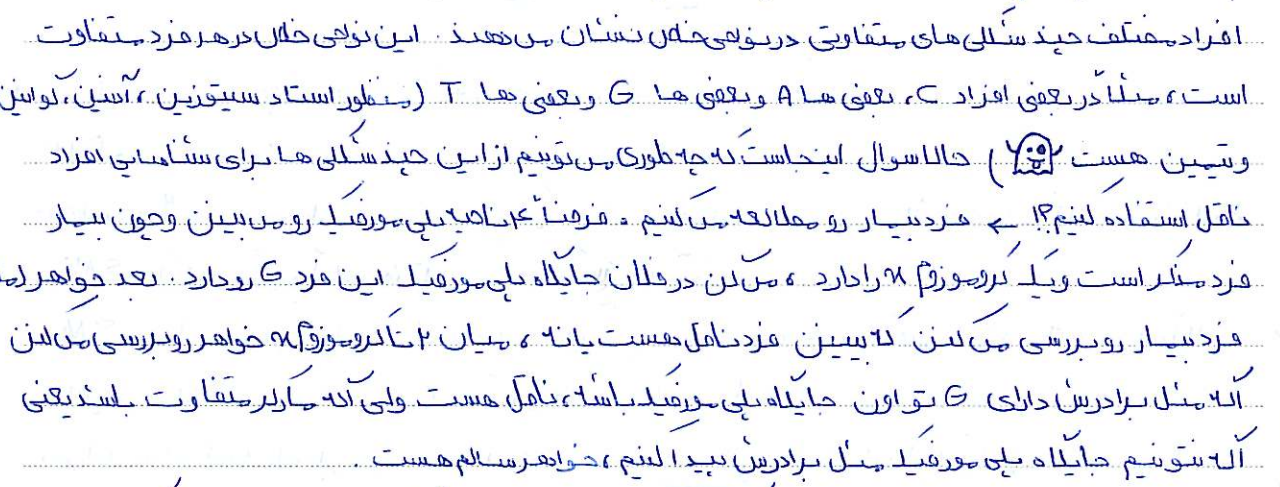 افراد مختلف چند شکلی های متفاوتی در نواحی خاص نشان می دهند. این نواحی خاص در هر فرد متفاوت
است، مثلاً در بعضی افراد C، بعضی ها A و بعضی ها G و بعضی ها T (منظور استاد سیتوزین، آدنین، گوانین
و تیمین هست) حالا سوال اینجاست که چه طوری می تونیم از این چند شکلی ها برای شناسایی افراد
ناقل استفاده کنیم؟! ← فرد بیمار رو مطالعه می کنیم. فرضاً ۴ ناحیه پلی مورفیک رو می بینن و چون بیمار
فرد مذکر است و یک کروموزوم x را دارد، می گن در فلان جایگاه پلی مورفیک این فرد G رو دارد. بعد خواهر این
فرد بیمار رو بررسی می کنن که ببینن فرد ناقل هست یا نه، میان ۲ تا کروموزوم x خواهر رو بررسی می کنن
اگه مثل برادرش دارای G تو اون جایگاه پلی مورفیک باشه، ناقل هست ولی اگه مارکر متفاوت باشد یعنی
اگه نتونیم جایگاه پلی مورفیک مثل برادرش پیدا کنیم، خواهر سالم هست.